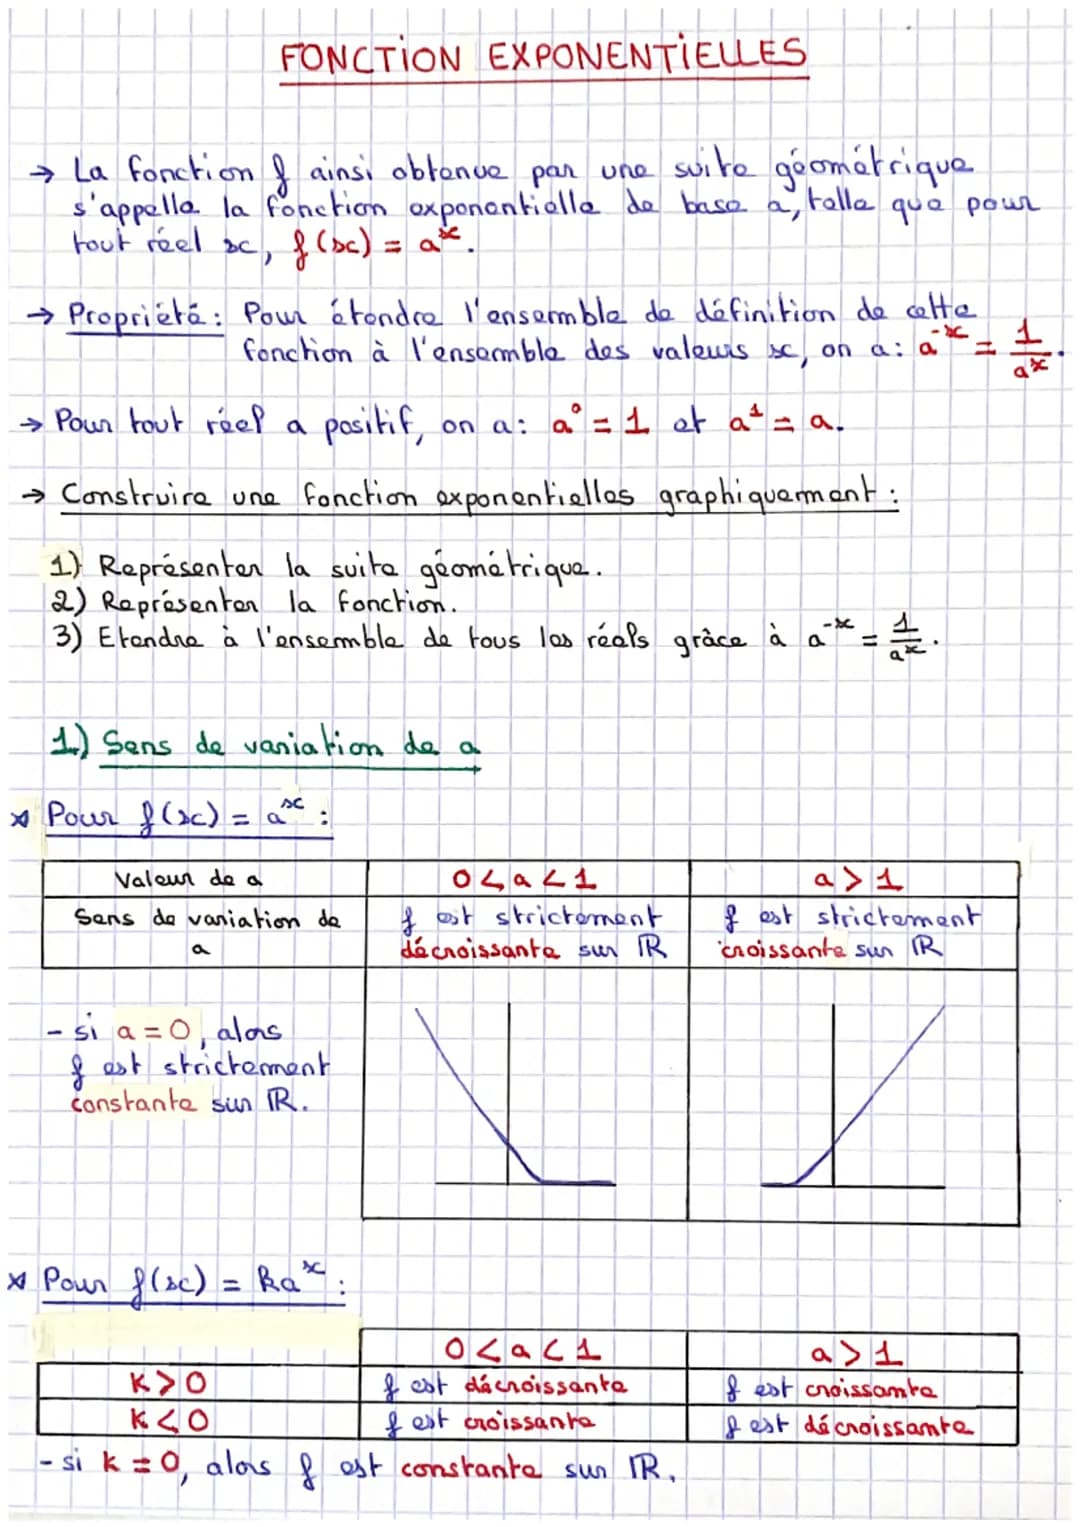 FONCTION EXPONENTIELLES
→ La fonction f ainsi obtenue par une suite géométrique
s'appelle la fonction exponentielle de base a, telle que pour
tout réel x, f(x) = aˣ.
→ Propriété : Pour étendre l'ensemble de définition de cette
fonction à l'ensemble des valeurs x, on a : a⁻ˣ = 1/aˣ.
→ Pour tout réel a positif, on a : a⁰ = 1 et a¹ = a.
→ Construire une fonction exponentielles graphiquement :
1) Représenter la suite géométrique.
2) Représenter la fonction.
3) Etendre à l'ensemble de tous les réels grâce à a⁻ˣ = 1/aˣ.
1) Sens de variation de a
* Pour f(x) = aˣ :
Valeur de a 0 < a < 1 a > 1
Sens de variation de a
f est strictement
décroissante sur ℝ
f est strictement
croissante sur ℝ
- si a = 0, alors
f est strictement
constante sur ℝ.
* Pour f(x) = kaˣ :
0 < a < 1 a > 1
K > 0 f est décroissante f est croissante
K < 0 f est croissante f est décroissante
- si k = 0, alors f est constante sur ℝ.